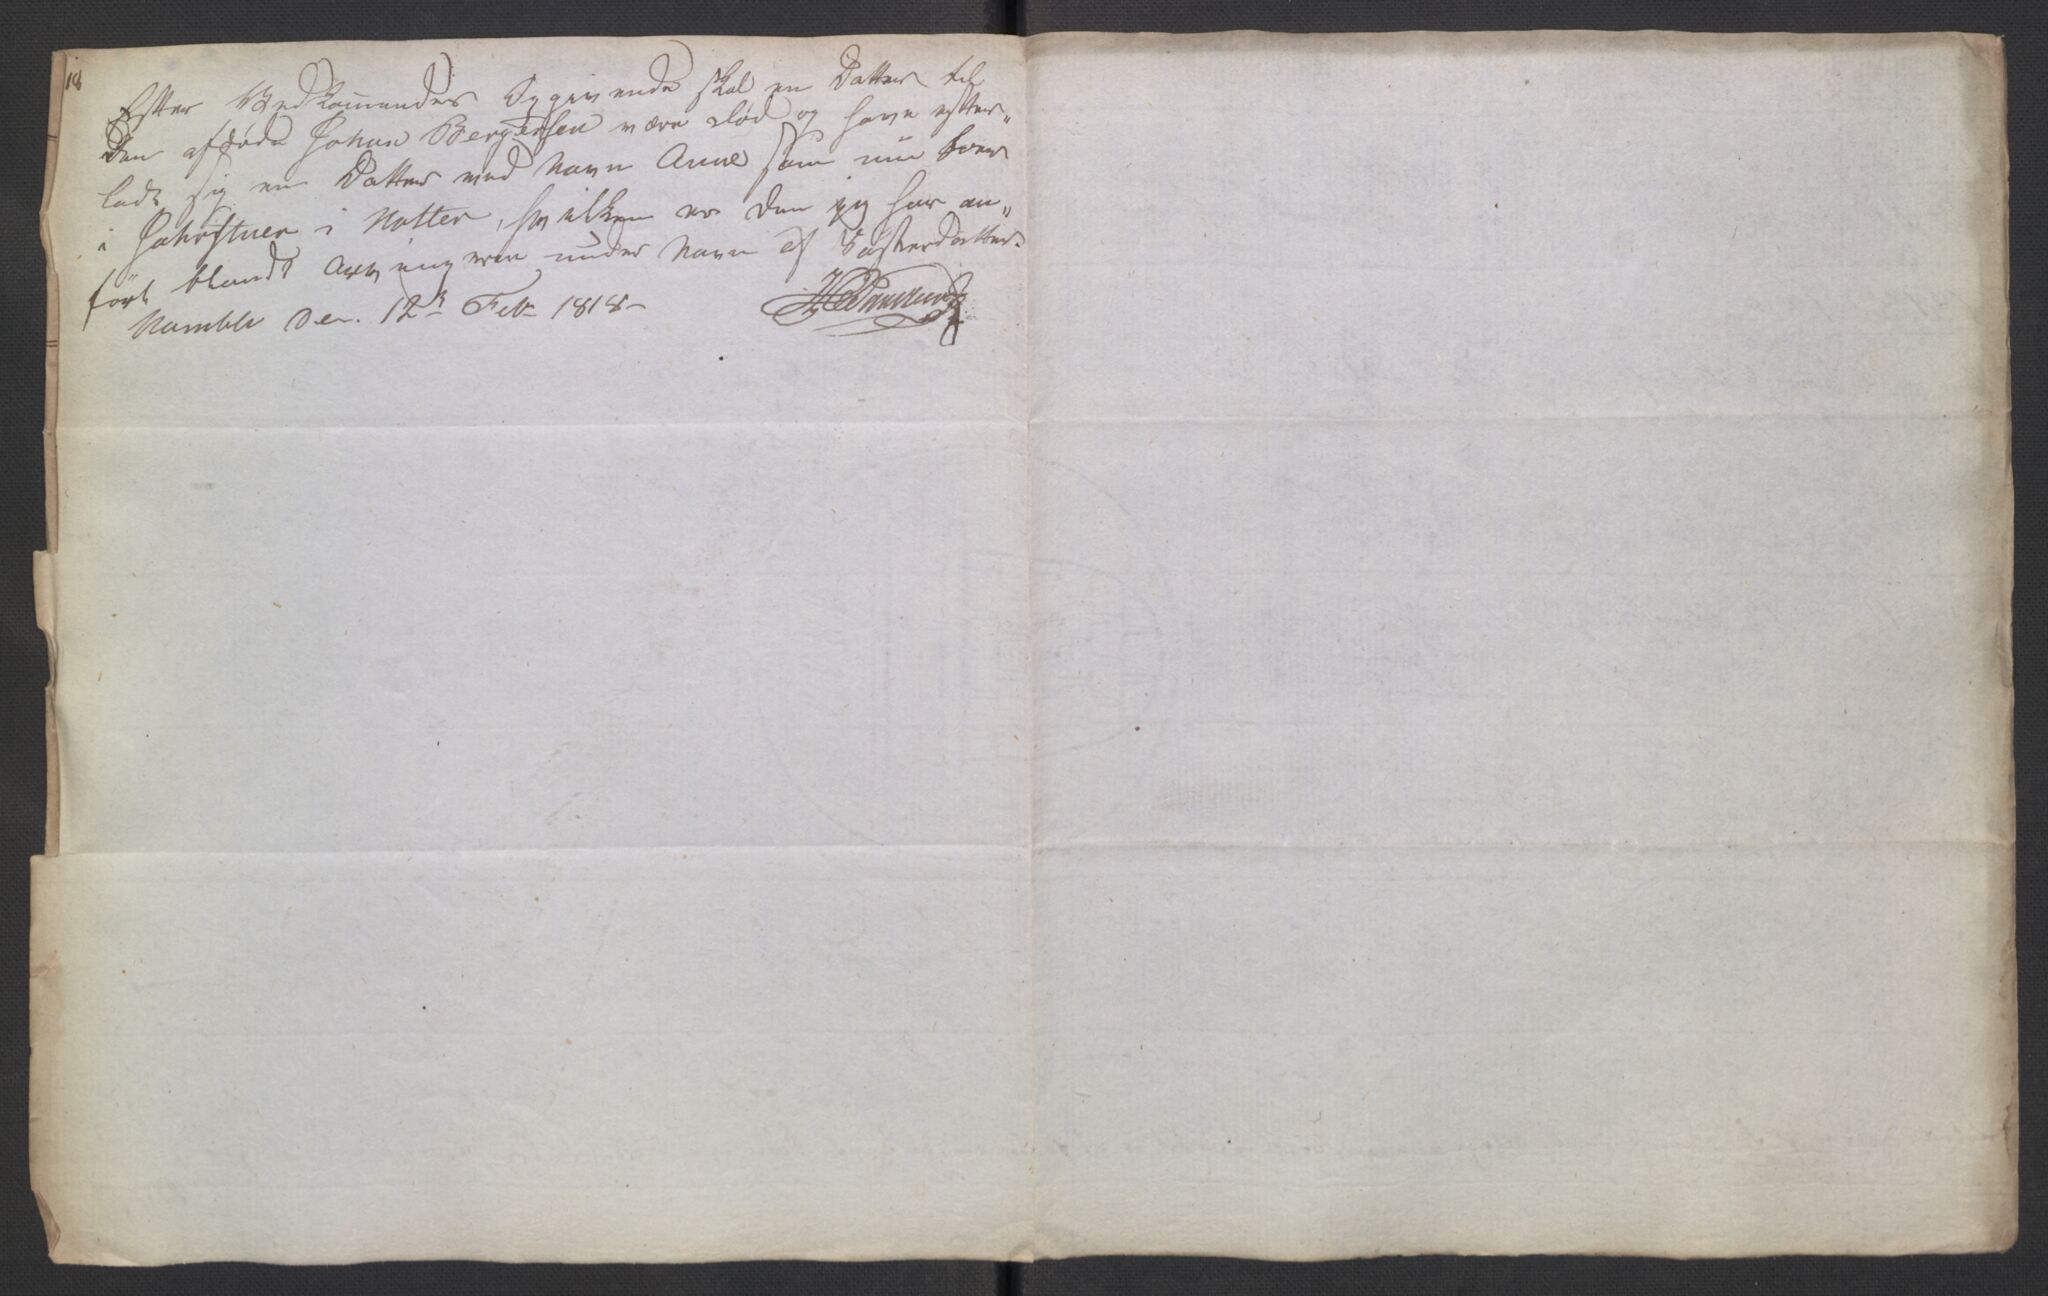 18
Efter Vedkommendes Opgivende skal en Datter til
den afdøde Johan Bergersen være død og have efter„
ladt sig en Datter ved Navn Anne som nu boer
i i Notter, hvilken er den jeg har an„
ført blandt Arvingerne under Navn af Søsterdatter.
Bamble den. 12te Feb 1818-